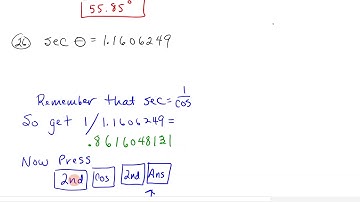 55.85°
26 sec θ = 1.1606249
Remember that sec = 1/cos
So get 1/1.1606249 =
.8616048131
Now Press
2nd Cos 2nd Ans